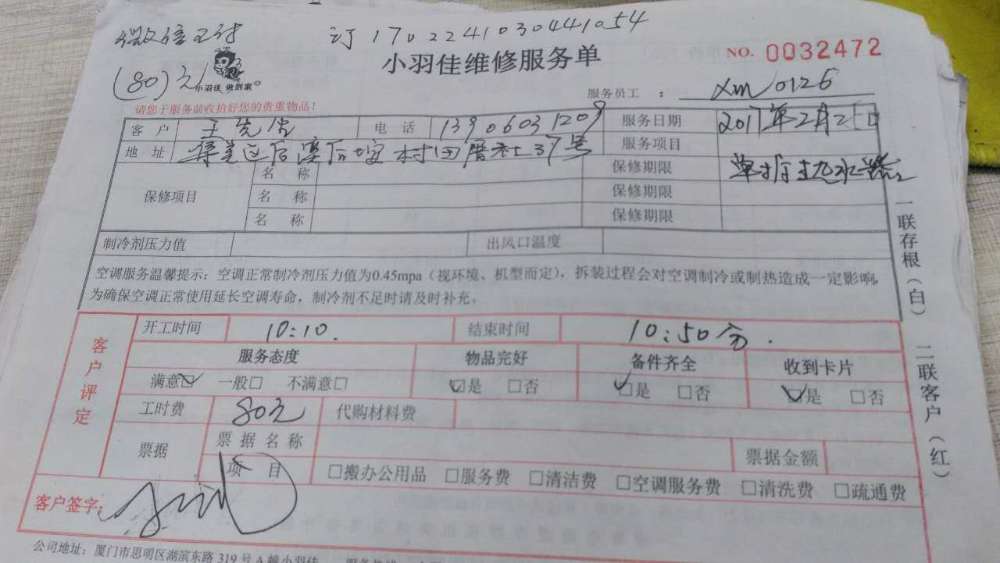 微信支付 订 170224103044 1054
小羽佳维修服务单 NO. 0032472
(80)元 小羽佳 做到家
服务员工 : xm0126
请您于服务前收拾好您的贵重物品!
客户 王先生 电话 13906031209 服务日期 2017年2月25日
地址 集美区后溪后垵村 社37号 服务项目
保修项目 名称 保修期限
名称 保修期限
名称 保修期限
制冷剂压力值 出风口温度
空调服务温馨提示:空调正常制冷剂压力值为0.45mpa(视环境、机型而定),拆装过程会对空调制冷或制热造成一定影响,
为确保空调正常使用延长空调寿命,制冷剂不足时请及时补充。
客户评定 开工时间 10:10. 结束时间 10:50分.
服务态度 物品完好 备件齐全 收到卡片
满意☑ 一般□ 不满意□ ☑是 □否 ☑是 □否 ☑是 □否
工时费 80元 代购材料费
票据 票据名称 票据金额
项目 □搬办公用品 □服务费 □清洁费 □空调服务费 □清洗费 □疏通费
客户签字:
公司地址:厦门市思明区湖滨东路 319 号 A
一联存根(白) 二联客户(红)